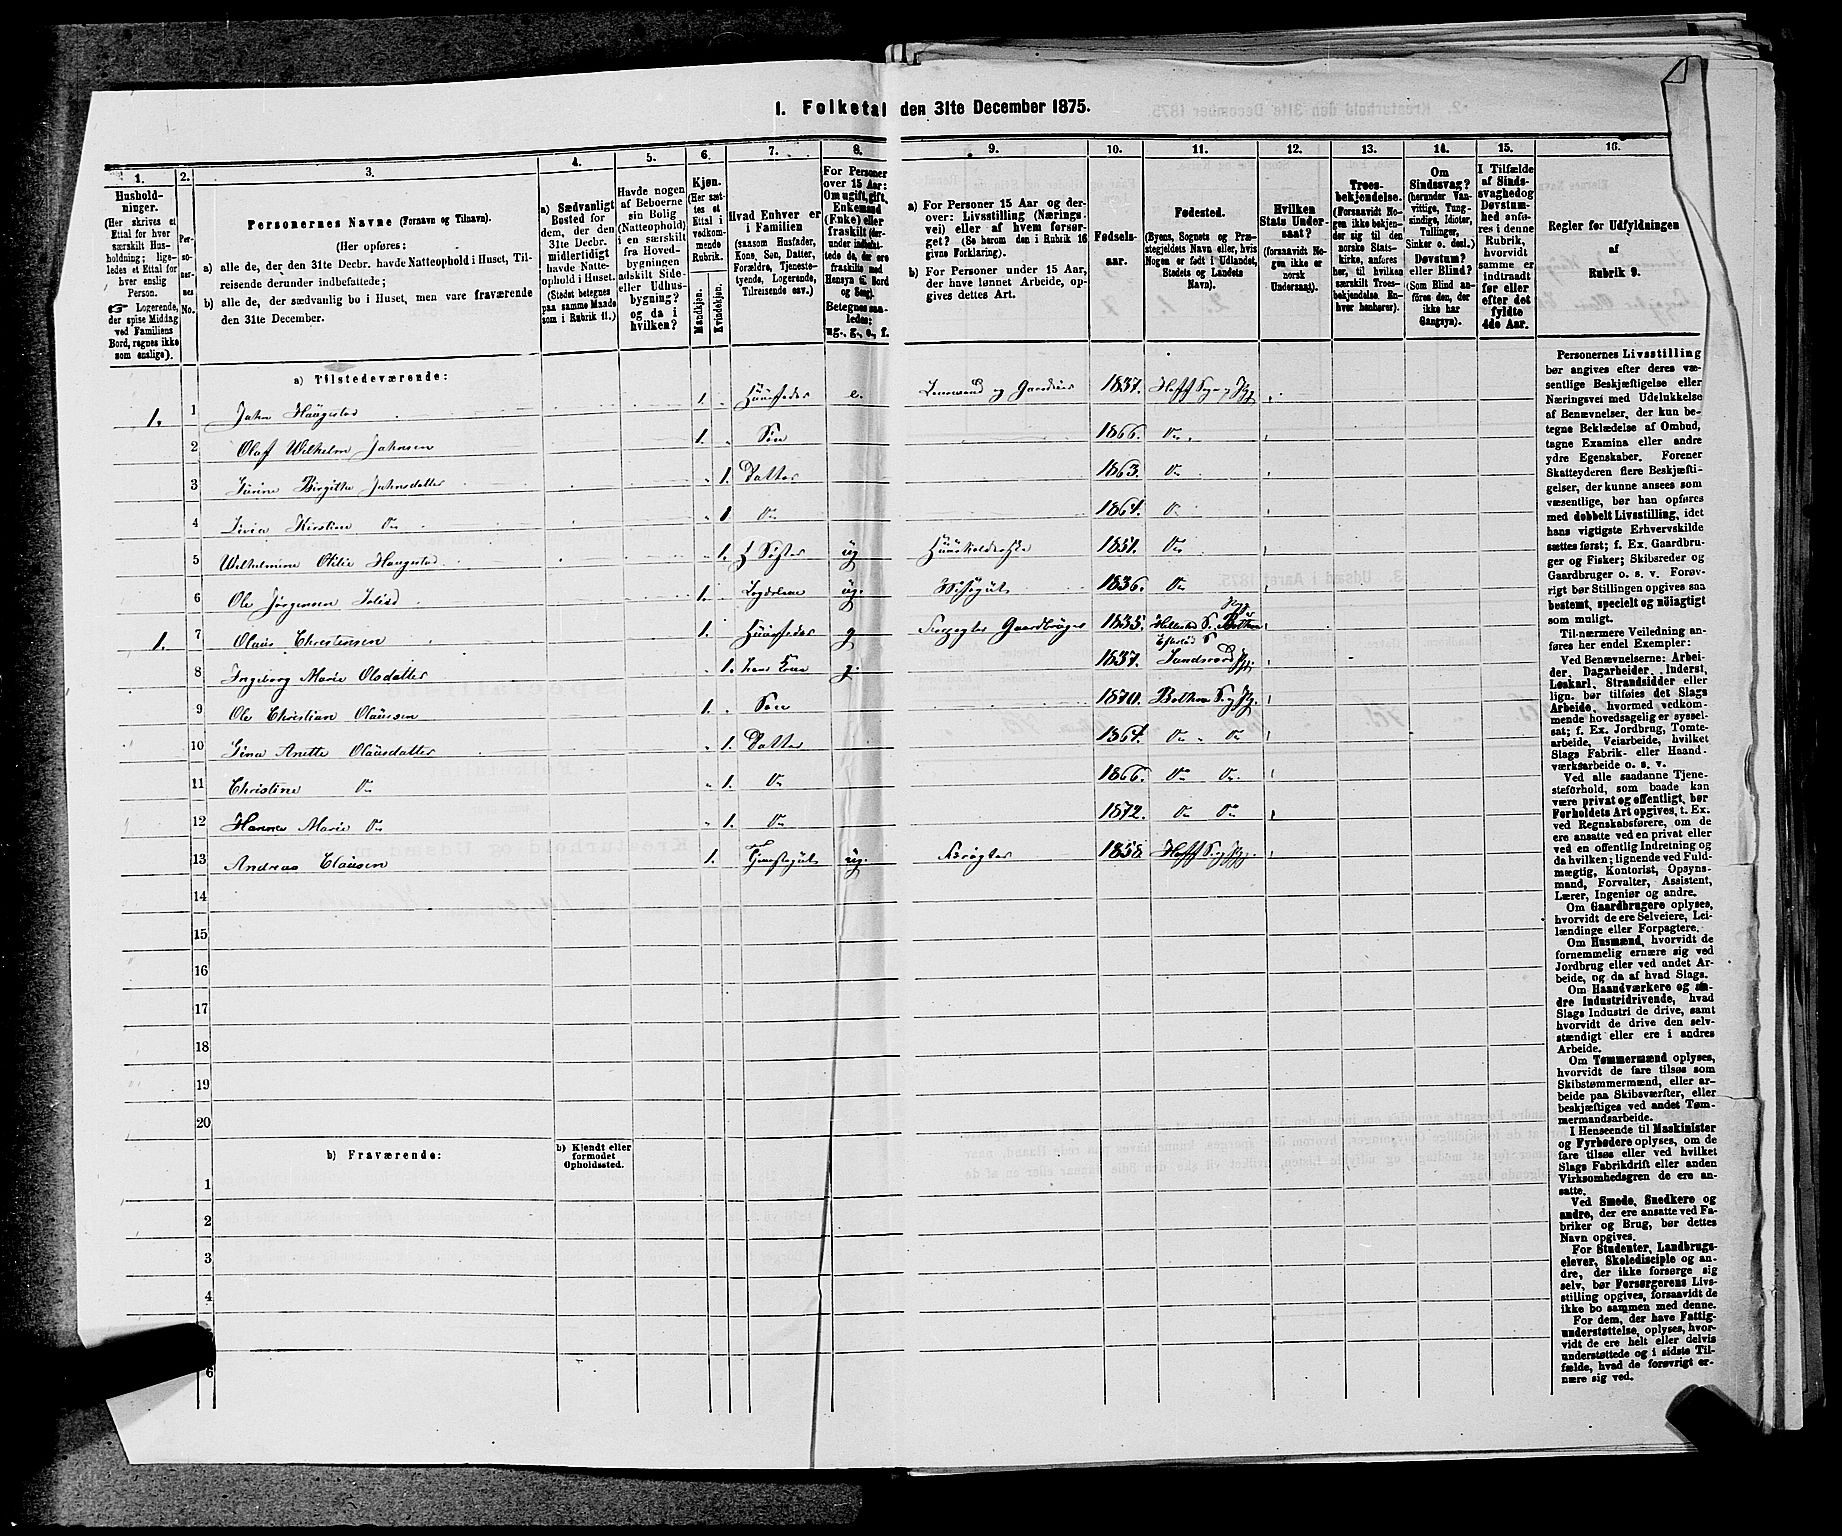 1. Folketal den 31te December 1875.
1. 2. 3. 4. 5. 6. 7. 8. 9. 10. 11. 12. 13. 14. 15. 16.
Hushold-
ninger.
(Her skrives et
Ettal for hver
særskilt Hus-
holdning; lige-
ledes et Ettal for
hver enslig
Person.
☞ Logerende,
der spise Middag
ved Familiens
Bord, regnes ikke
som enslige).
Per-
so-
ner-
nes
No.
Personernes Navne (Fornavn og Tilnavn).
(Her opføres:
a) alle de, der den 31te Decbr. havde Natteophold i Huset, Til-
reisende derunder indbefattede;
b) alle de, der sædvanlig bo i Huset, men vare fraværende
den 31te December.
a) Sædvanligt
Bosted for
dem, der den
31te Decbr.
midlertidigt
havde Natte-
ophold i Huset.
(Stedet betegnes
paa samme Maade
som i Rubrik 11.)
Havde nogen
af Beboerne
sin Bolig
(Natteophold)
i en særskilt
fra Hoved-
bygningen
adskilt Side-
eller Udhus-
bygning?
og da i
hvilken?
Kjøn.
(Her sæt-
tes et
Ettal i
vedkom-
mende
Rubrik.
Mandkjøn.
Kvindekjøn.
Hvad Enhver er
i Familien
(saasom Husfader,
Kone, Søn, Datter,
Forældre, Tjeneste-
tyende, Logerende,
Tilreisende osv.)
For Personer
over 15 Aar:
Om ugift, gift,
Enkemand
(Enke) eller
fraskilt (her-
under indbefat-
tede de, der ere
fraskilte med
Hensyn til Bord
og Seng).
Betegnes saa-
ledes:
ug., g., e., f.
a) For Personer 15 Aar og der-
over: Livsstilling (Nærings-
vei) eller af hvem forsør-
get? (Se herom den i Rubrik 16
givne Forklaring).
b) For Personer under 15 Aar,
der have lønnet Arbeide, op-
gives dettes Art.
Fødsels-
aar.
Fødested.
(Byens, Sognets og Præ-
stegjeldets Navn eller, hvis
Nogen er født i Udlandet,
Stedets og Landets
Navn).
Hvilken
Stats Under-
saat?
(forsaavidt No-
gen ikke er
norsk
Undersaat).
Troes-
bekjendelse.
(Forsaavidt No-
gen ikke bekjen-
der sig til den
norske Stats-
kirke, anføres
her, til hvilken
særskilt Troes-
bekjendelse En-
hver henhører).
Om
Sindssvag?
(herunder Van-
vittige, Tung-
sindige, Idioter,
Tullinger,
Sinker o. desl.)
Døvstum?
eller Blind?
(Som Blind an-
føres den, der
ikke har
Gangsyn).
I Tilfælde
af Sinds-
svaghed og
Døvstum-
hed anfø-
res i denne
Rubrik,
hvorvidt
samme er
indtraadt
før eller
efter det
fyldte
4de Aar.
Regler for Udfyldningen
af
Rubrik 9.
a) Tilstedeværende:
1. 1 John Haugestad 1. Huusfader e. Lensmand og Gaardeier 1837. Hoff S. og Pg.
2 Olaf Wilhelm Johnsen 1. Søn 1866. Do
3 Birgitte Johnsdatter 1. Datter 1863. Do
4 Kirstine Do 1. Do 1864. Do
5 Wilhelmine Otilie Haugestad 1. Søster ug 1851. Do
6 Ole Jørgensen 1. Logerende ug. 1836. Do
1. 7 Olaus Christensen 1. Huusfader g Gaardbruger 1835. Hillestad S. Botne
8 Ingeborg Marie Olsdatter 1. hans Kone g. 1837. Sandsvær Pg.
9 Ole Christian Olausen 1. Søn 1870. Bothne S. og Pg.
10 Gina Anette Olausdatter 1. Datter 1864. Do Do
11 Christine Do 1. Do 1866. Do Do.
12 Hanna Marie Do 1. Do 1872. Do Do
13 Andreas Clausen 1. Tjenestegut ug. 1858. Hoff S. og Pg.
14
15
16
17
18
19
20
b) Fraværende:
b) Kjendt eller
formodet
Opholdssted.
1
2
3
4
6
Personernes Livsstilling
bør angives efter deres væ-
sentlige Beskjæftigelse eller
Næringsvei med Udelukkelse
af Benævnelser, der kun be-
tegne Beklædelse af Ombud,
tagne Examina eller andre
ydre Egenskaber. Forener
Skatteyderen flere Beskjæfti-
gelser, der kunne ansees som
væsentlige, bør han opføres
med dobbelt Livsstilling, idet
hans vigtigste Erhvervskilde
sættes først; f. Ex. Gaardbru-
ger og Fisker; Skibsreder og
Gaardbruger o. s. v. Forøv-
rigt bør Stillingen opgives saa
bestemt, specielt og nöiagtigt
som muligt.
Til nærmere Veiledning an-
føres her endel Exempler:
Ved Benævnelserne: Arbei-
der, Dagarbeider, Inderst,
Løskarl, Strandsidder eller
lign. bør tilføies det Slags
Arbeide, hvormed vedkom-
mende hovedsagelig er syssel-
sat; f. Ex. Jordbrug, Tomte-
arbeide, Veiarbeide, hvilket
Slags Fabrik- eller Haand-
værksarbeide o. s. v.
Ved alle saadanne Tjene-
steforhold, som baade kan
være privat og offentligt, bør
Forholdets Art opgives, t. Ex.
ved Regnskabsførere, om de
ere ansatte ved en privat eller
ved en offentlig Indretning og
da hvilken; lignende ved Fuld-
mægtig, Kontorist, Opsyns-
mand, Forvalter, Assistent,
Lærer, Ingeniør og andre.
Om Gaardbrugere oplyses,
hvorvidt de ere Selveiere, Lei-
lændinge eller Forpagtere.
Om Husmænd, hvorvidt de
fornemmelig ernære sig ved
Jordbrug eller ved andet Ar-
beide, og da af hvad Slags.
Om Haandværkere og an-
dre Industridrivende, hvad
Slags Industri de drive, samt
hvorvidt de drive den selv-
stændigt eller ere i andres
Arbeide.
Om Tømmermænd oplyses,
hvorvidt de fare tilsøs som
Skibstømmermænd, eller ar-
beide paa Skibsværfter, eller
beskjæftiges ved andet Tøm-
mermandsarbeide.
I Henseende til Maskinister
og Fyrbødere oplyses, om de
fare tilsøs eller ved hvilket
Slags Fabrikdrift eller anden
Virksomhedsgren de ere an-
satte.
Ved Smede, Snedkere og
andre, der ere ansatte ved Fa-
briker og Brug, bør dettes
Navn opgives.
For Studenter, Landbrugs-
elever, Skoledisciple og an-
dre, der ikke forsørge sig
selv, bør Forsørgerens Livs-
stilling opgives, forsaavidt de
ikke bo sammen med denne.
For dem, der have Fattig-
understøttelse, oplyses, hvor-
vidt de ere helt eller delvis
understøttede og i sidste Til-
fælde, hvad de forøvrigt er-
nære sig ved.